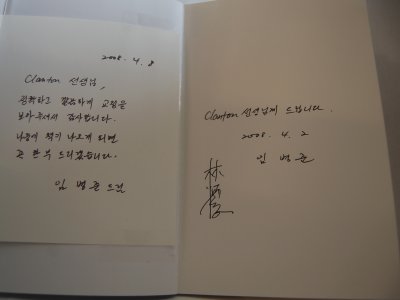 2008. 4. 8
Clanton 선생님,
정확하고 꼼꼼하게 교정을
보아주셔서 감사합니다.
나중에 책이 나오게 되면
곧 한 부 드리겠습니다.
임 병 준 드림
Clanton 선생님께 드립니다.
2008. 4. 2
임 병 준
林